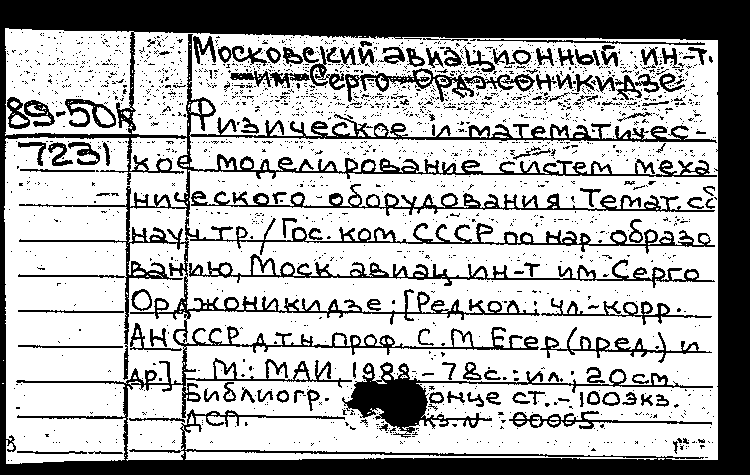 Московский авиационный ин-т.
им. Серго Орджоникидзе
89-50к
7231
Физическое и математичес-
кое моделирование систем меха
нического оборудования: Темат. сб
науч. тр. / Гос. ком. СССР по нар. образо
ванию, Моск. авиац. ин-т им. Серго
Орджоникидзе; [Редкол.: чл.-корр.
АНСССР д.т.н. проф. С.М Егер (пред.) и
др.]. – М.: МАИ, 1988 – 78с.: ил.; 20 см
Библиогр. онце ст. – 100экз.
ДСП. кз. N 00005.